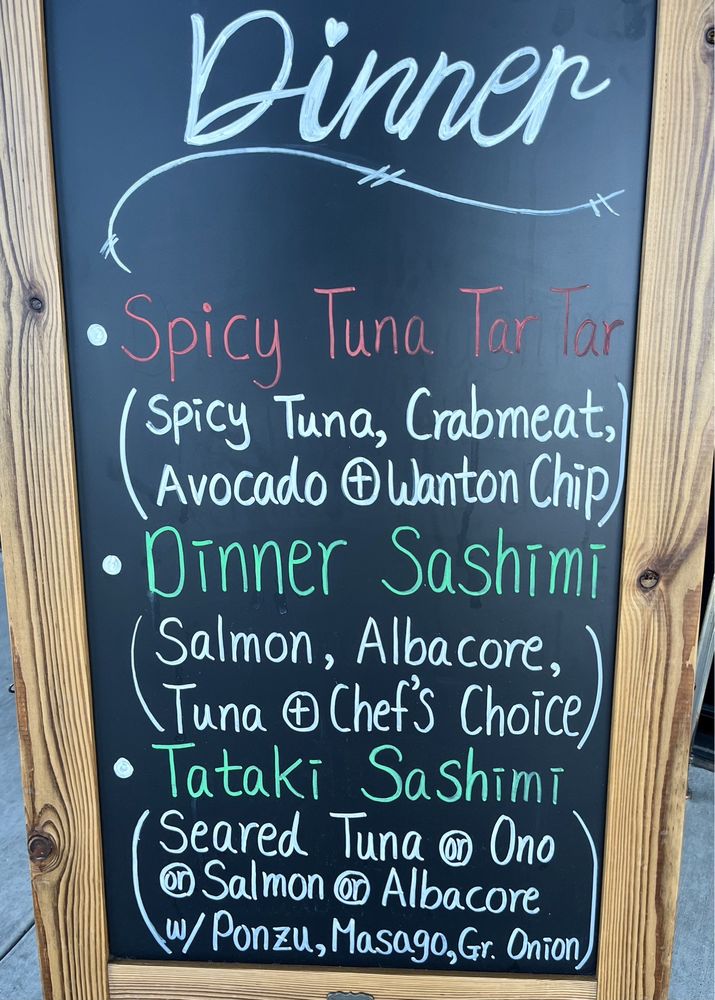 Dinner
Spicy Tuna Tar Tar
(Spicy Tuna, Crabmeat,
Avocado + Wanton Chip)
Dinner Sashimi
(Salmon, Albacore,
Tuna + Chef's Choice)
Tataki Sashimi
(Seared Tuna or Ono
or Salmon or Albacore
w/ Ponzu, Masago, Gr. Onion)